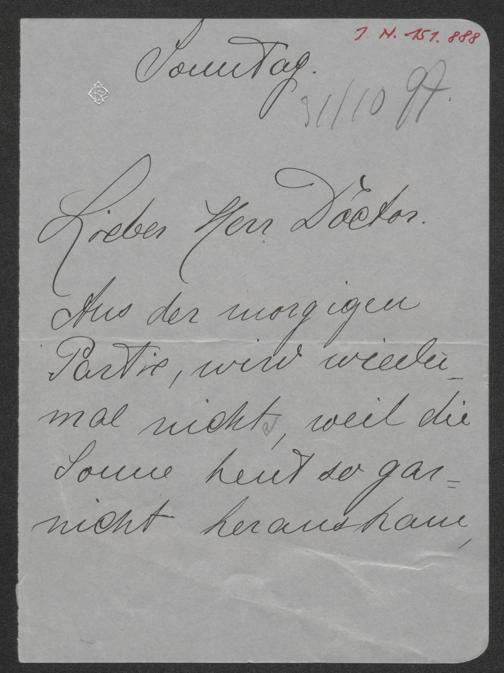 I. N. 151.888
Sonntag.
31/10 97.
Lieber Herr Doctor.
Aus der morgigen
Partie, wird wieder
mal nichts, weil die
Sonne heut so gar=
nicht herauskam,